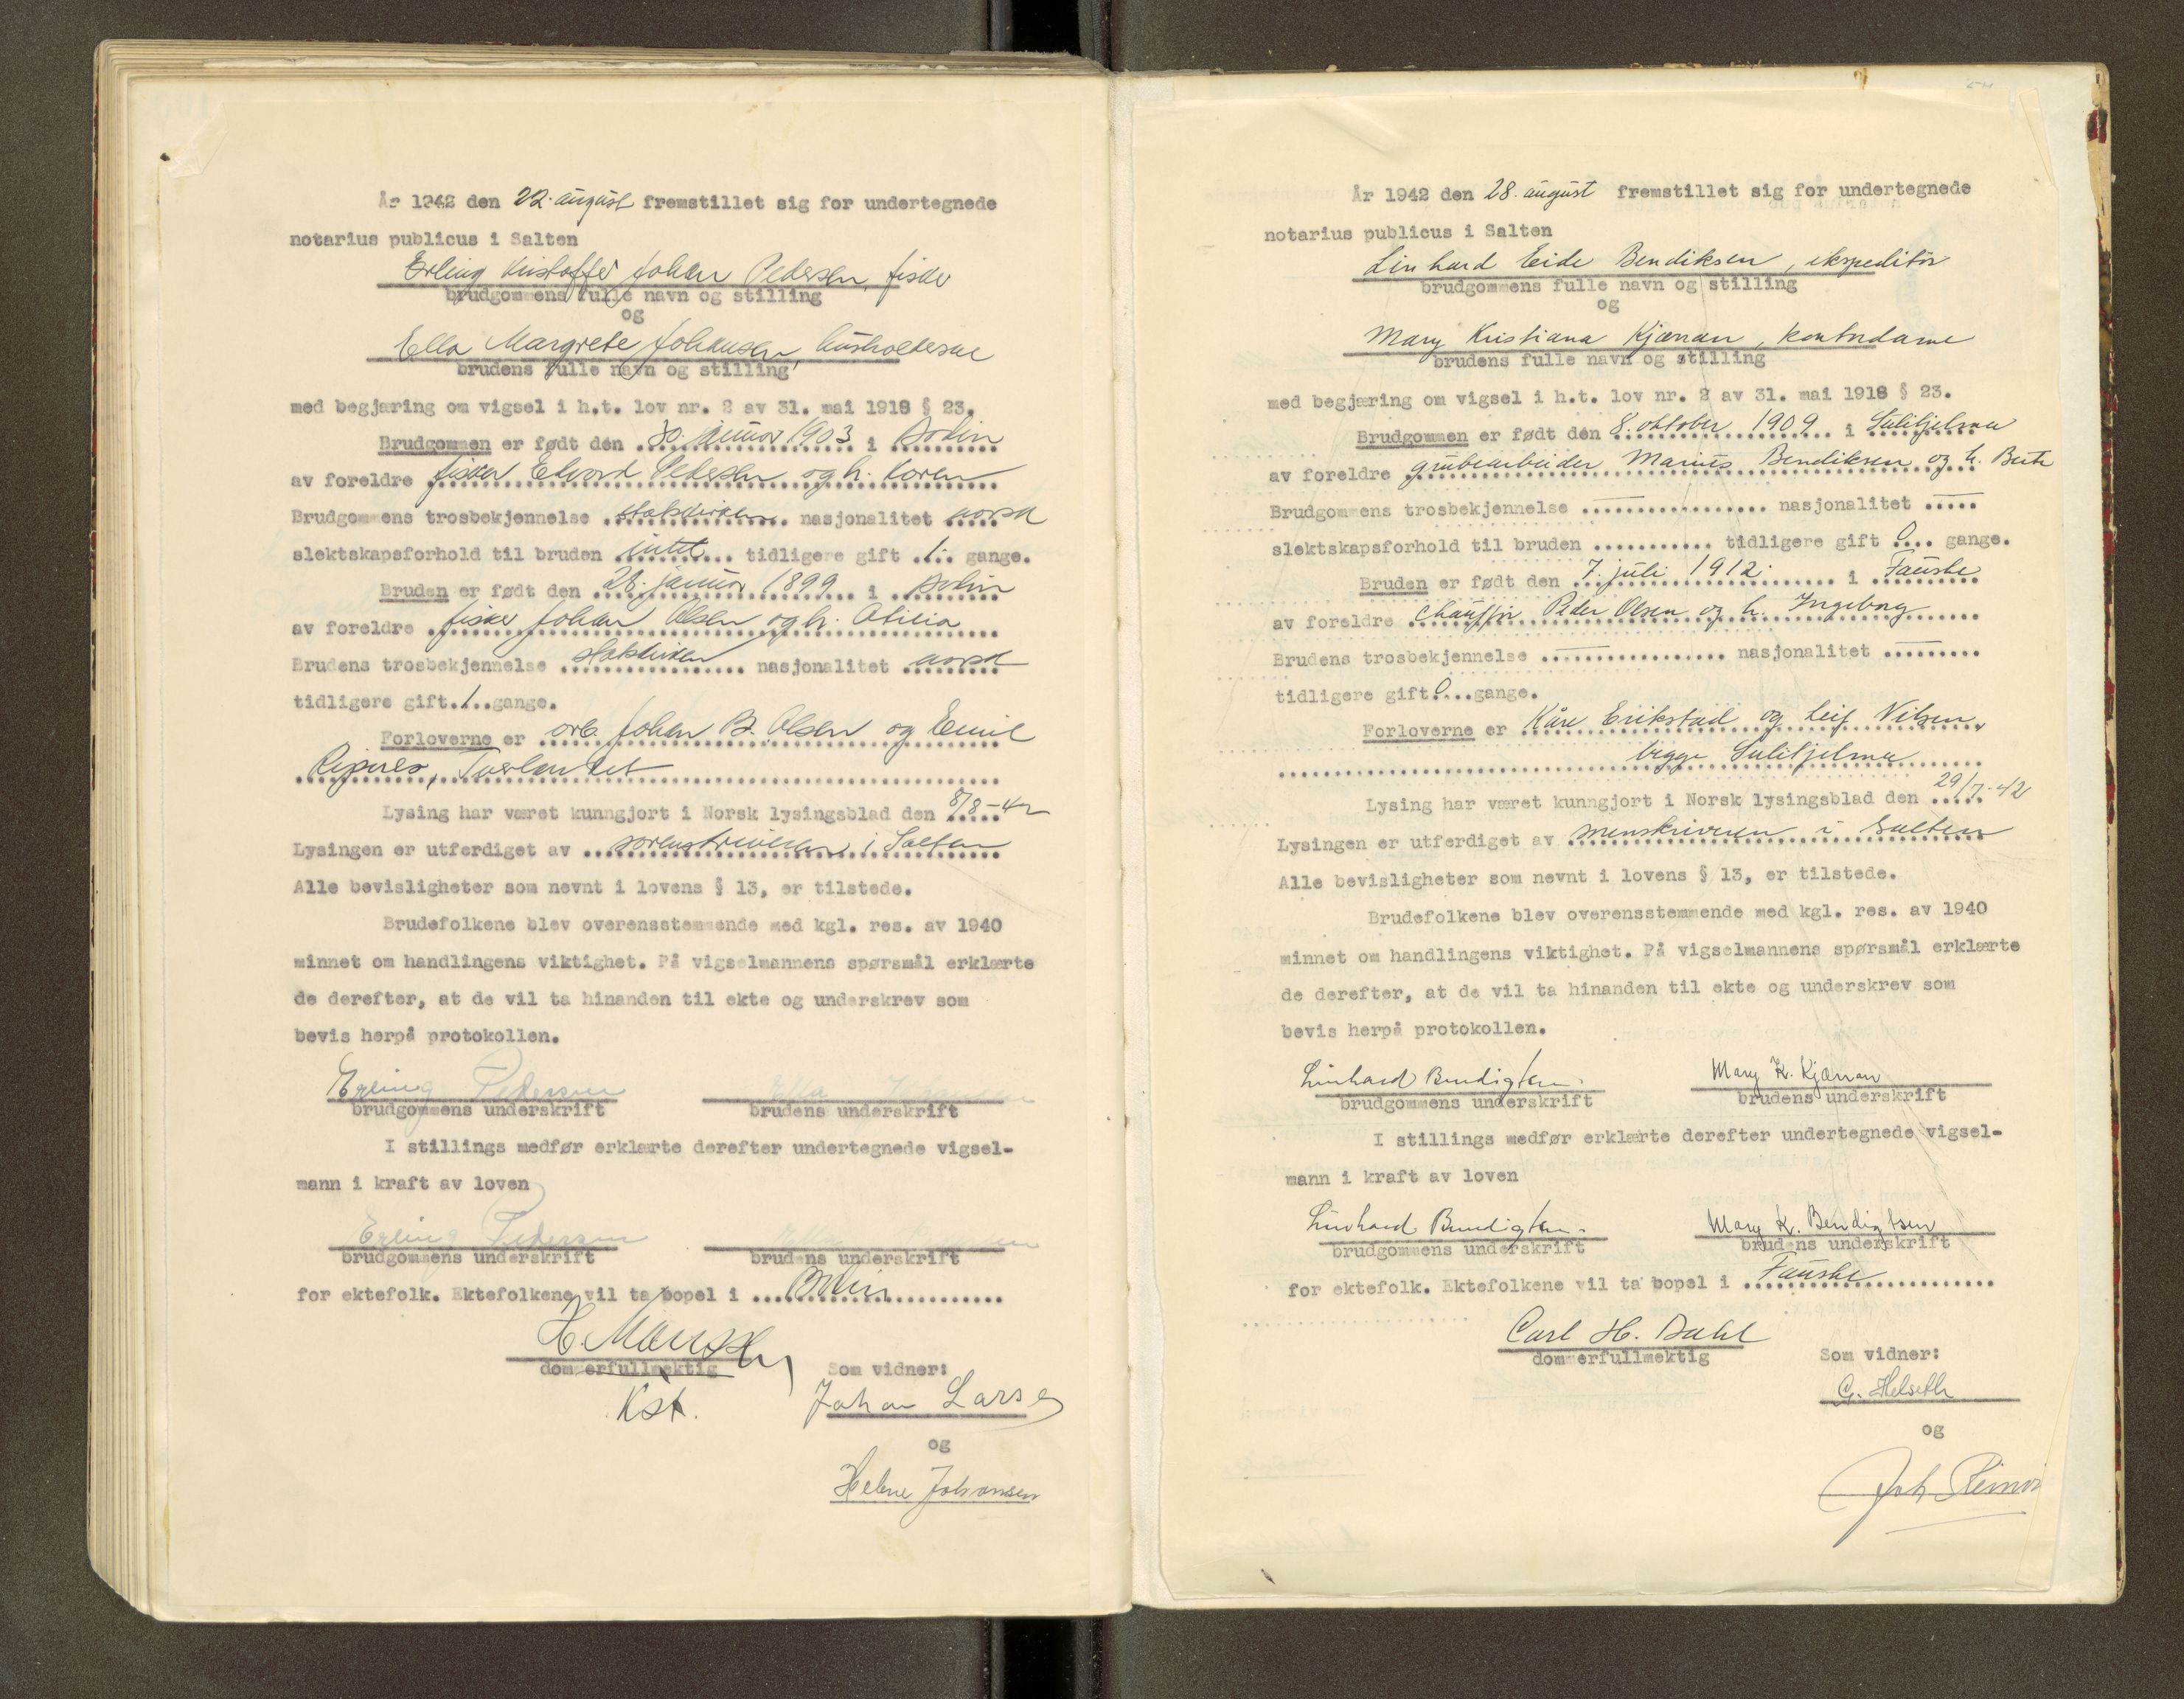 År 1942 den 22. august fremstillet sig for undertegnede
notarius publicus i Salten
Erling Kristoffer Johan Pedersen, fisker
brudgommens fulle navn og stilling
og
Ella Margrete Johansen, husholderske
brudens fulle navn og stilling
med begjæring om vigsel i h.t. lov nr. 2 av 31. mai 1918 § 23.
Brudgommen er født den 30. januar 1903 i Bodin
av foreldre fisker Edvard Pedersen og h. Karen
Brudgommens trosbekjennelse statskirken nasjonalitet norsk
slektskapsforhold til bruden intet tidligere gift 1 gange.
Bruden er født den 28. januar 1899 i Bodin
av foreldre fisker Johan Olsen og h. Otilia
Brudens trosbekjennelse statskirken nasjonalitet norsk
tidligere gift 1 gange.
Forloverne er arb. Johan B. Olsen og Emil
Lysing har været kunngjort i Norsk lysingsblad den 8/8-42
Lysingen er utferdiget av sorenskriveren i Salten
Alle bevisligheter som nevnt i lovens § 13, er tilstede.
Brudefolkene blev overensstemmende med kgl. res. av 1940
minnet om handlingens viktighet. På vigselmannens spørsmål erklærte
de derefter, at de vil ta hinanden til ekte og underskrev som
bevis herpå protokollen.
Erling Pedersen Ella Johansen
brudgommens underskrift brudens underskrift
I stillings medfør erklærte derefter undertegnede vigsel-
mann i kraft av loven
Erling Pedersen Ella Pedersen
brudgommens underskrift brudens underskrift
for ektefolk. Ektefolkene vil ta bopel i Bodin
dommerfullmektig Som vidner:
Kst. Johan Larsen
og
Helene Johansen
År 1942 den 28. august fremstillet sig for undertegnede
notarius publicus i Salten
Linhard Eide Bendiksen, ekspeditør
brudgommens fulle navn og stilling
og
Mary Kristiana Kjærran, kontordame
brudens fulle navn og stilling
med begjæring om vigsel i h.t. lov nr. 2 av 31. mai 1918 § 23.
Brudgommen er født den 8. oktober 1909 i Sulitjelma
av foreldre grubearbeider Marius Bendiksen og h. Berte
Brudgommens trosbekjennelse — nasjonalitet —
slektskapsforhold til bruden tidligere gift 0 gange.
Bruden er født den 7. juli 1912 i Fauske
av foreldre chauffør Peder Olsen og h. Ingeborg
Brudens trosbekjennelse — nasjonalitet
tidligere gift 0 gange.
Forloverne er Kåre Erikstad og Leif Nilsen,
begge Sulitjelma
Lysing har været kunngjort i Norsk lysingsblad den 29/7-42
Lysingen er utferdiget av sorenskriveren i Salten
Alle bevisligheter som nevnt i lovens § 13, er tilstede.
Brudefolkene blev overensstemmende med kgl. res. av 1940
minnet om handlingens viktighet. På vigselmannens spørsmål erklærte
de derefter, at de vil ta hinanden til ekte og underskrev som
bevis herpå protokollen.
Linhard Bendigtsen. Mary K. Kjærran
brudgommens underskrift brudens underskrift
I stillings medfør erklærte derefter undertegnede vigsel-
mann i kraft av loven
Linhard Bendigtsen. Mary K. Bendigtsen
brudgommens underskrift brudens underskrift
for ektefolk. Ektefolkene vil ta bopel i Fauske
Carl H. Dahl
dommerfullmektig Som vidner:
G. Helseth
og
Joh